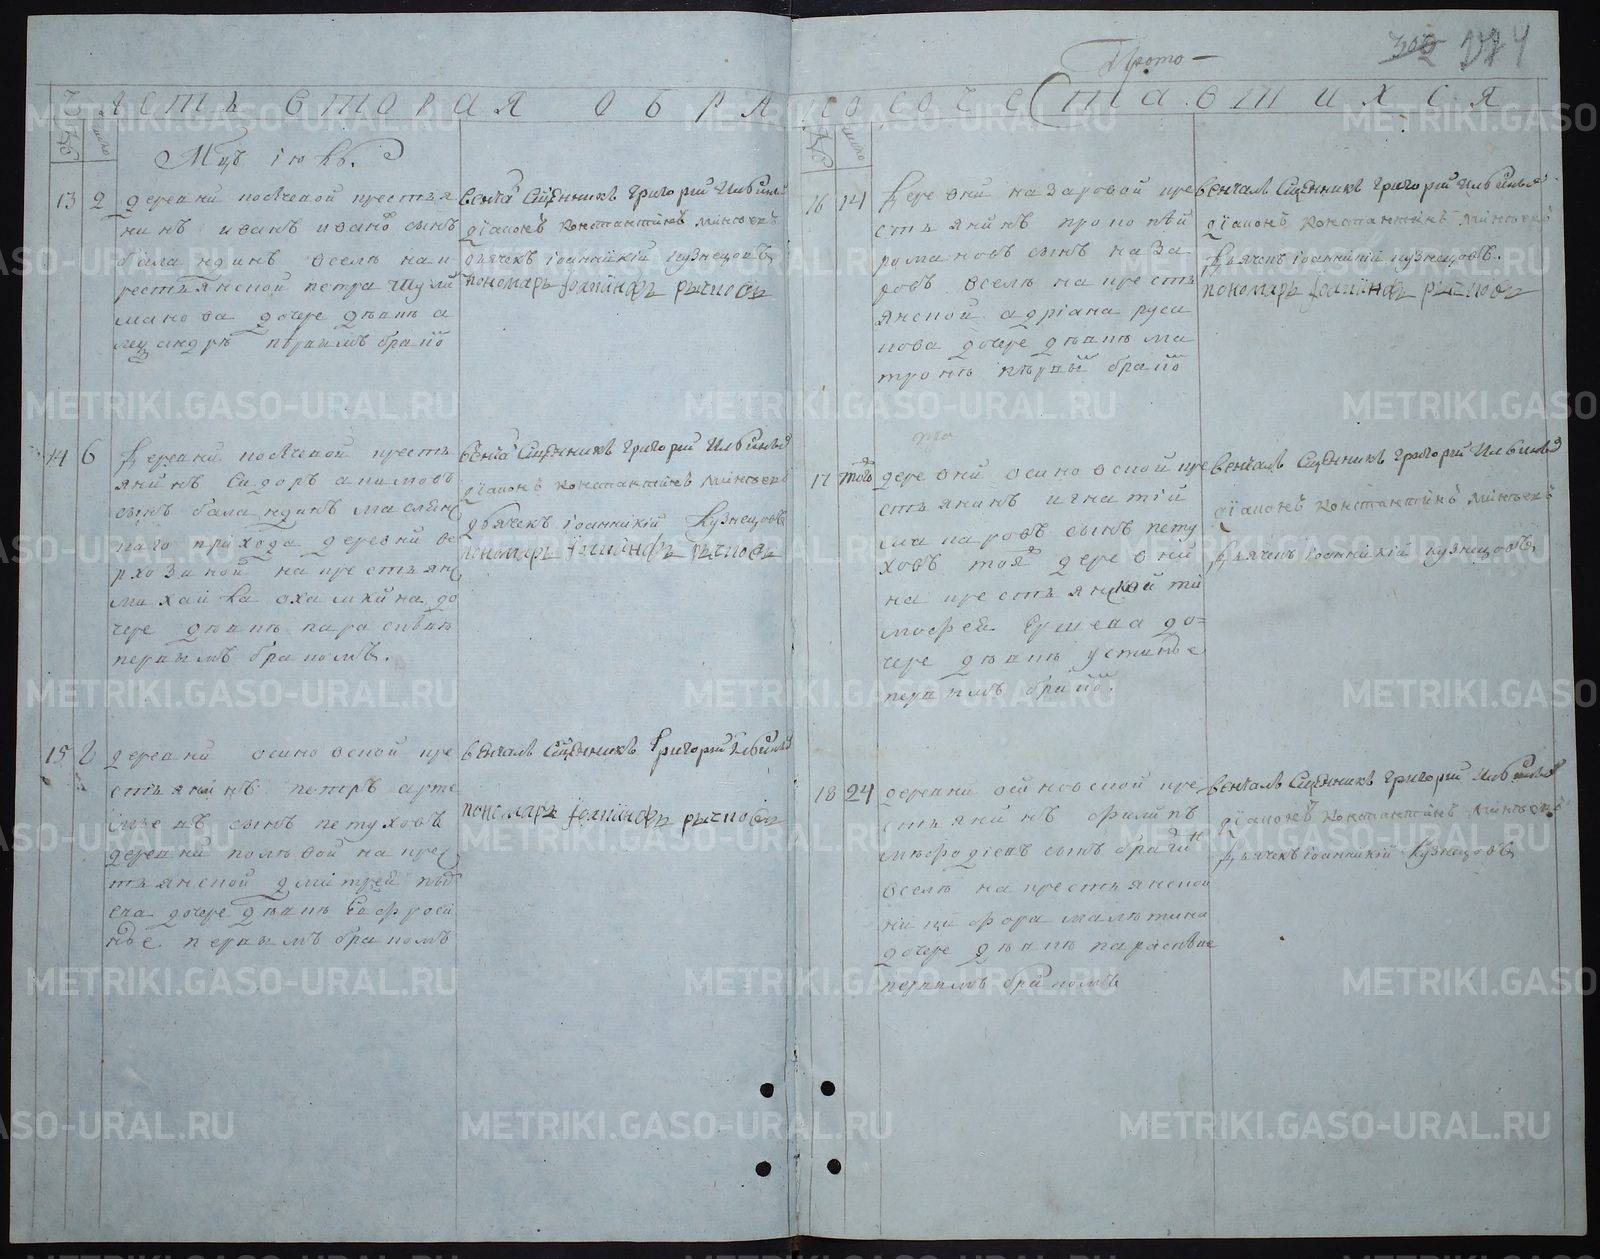 Прото—
174
часть вторая о бра
косочетавшихся
Мцъ июль.
13 2 деревни
нинъ иванъ ивано сынъ
баландинъ вселъ на к
рестьянской петра шули
манова дочере девкъ а
леѯандръ первымъ бракО
венча Сщенникъ Григорий Ильиныхъ
діаконъ Константинъ
дьячекъ іоанникій кузнецовъ
пономарь іоакинфъ рычковъ
14 6 деревни
янинъ Сидоръ акимовъ
сынъ баландинъ маслян
каго прихода деревни ве
рхозиной на крестьян
михайла охалкина до
чере девкъ парасивкъ
первымъ бракомъ.
венча Сщенникъ Григорий Ильиныхъ
діаконъ Константинъ
дьячекъ іоанникій Кузнецовъ
пономарь іоакинфъ рычковъ
15 деревни осиновской кре
стьянинъ петръ арте
мьевъ сынъ петуховъ
деревни полевой на крес
тьянской дмитрей
дочере девкъ Евфроси
нье первымъ бракомъ
венчалъ Сщенникъ Григорий Ильиныхъ
пономарь іоакинфъ рычковъ
16 14 деревни назаровой кре
стьянинъ прокопей
романовъ сынъ наза
ровъ вселъ на кресть
янской адріана руса
кова дочере девкъ ма
тронъ первый бракО
венчалъ Сщенникъ Григорий Ильиныхъ
діаконъ Константинъ
дьячекъ іоанникій кузнецовъ.
пономарь іоакинфъ рычковъ
17 того деревни осиновской кре
стьянинъ игнатій
макаровъ сынъ пету
ховъ тоя деревни
на крестьянской ти
мофей Ершева до=
чере девкъ устинье
первымъ бракО.
венчалъ Сщенникъ Григорий Ильиныхъ
діаконъ Константинъ
дьячекъ іоанникій кузнецовъ
18 24 деревни осиновской кре
стьянинъ филипъ
мефодіевъ сынъ брагин
вселъ на крестьянской
никифора малетина
дочере девкъ парасивие
первымъ бракомъ
венчалъ Сщенникъ Григорий Ильиныхъ
діаконъ Константинъ
дьячекъ іоанникій Кузнецовъ
METRIKI.GASO-URAL.RU